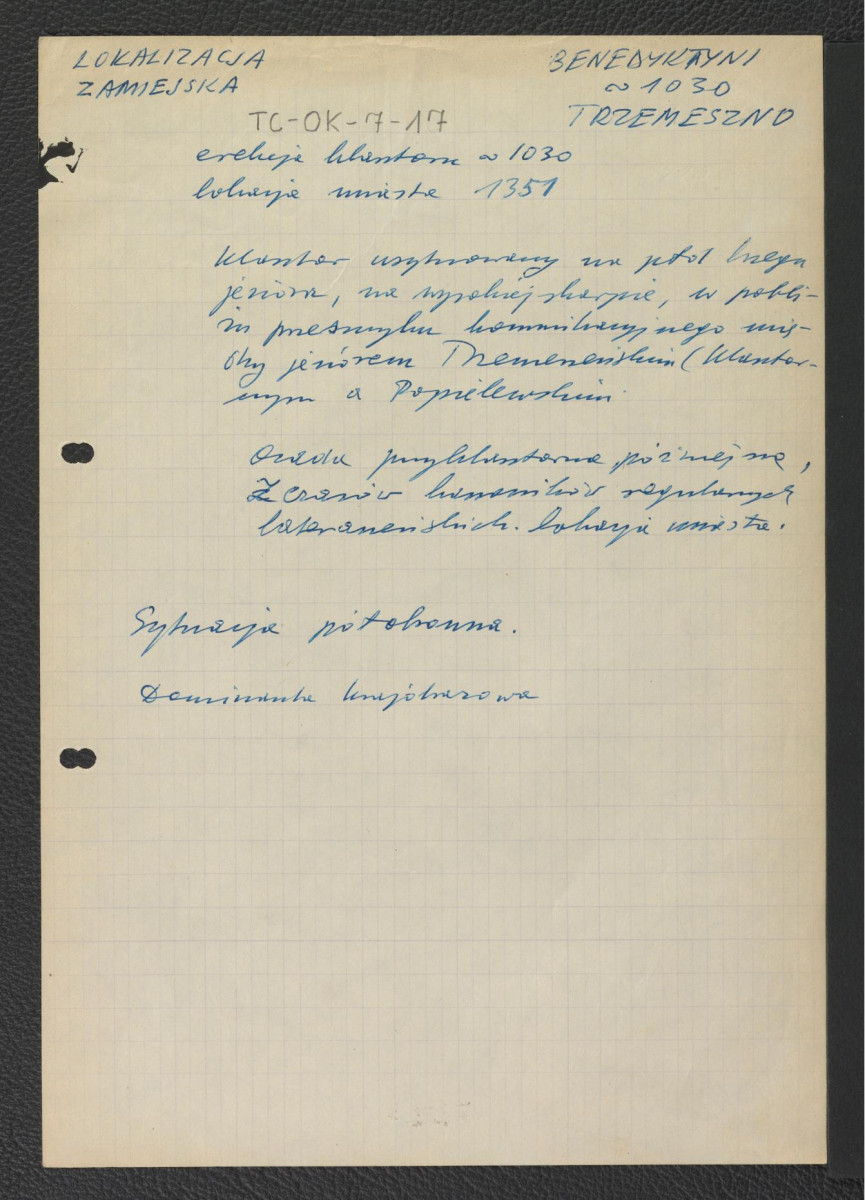 LOKALIZACJA
ZAMIEJSKA
BENEDYKTYNI
~ 1030
TRZEMESZNO
TC-OK-7-17
erekcja klasztoru ~ 1030
lokacja miasta 1351
Klasztor usytuowany na płd brzegu
jeziora, na wysokiej skarpie, w pobli-
żu przesmyku komunikacyjnego mię-
dzy jeziorem Trzemeszeńskim (Klasztor-
nym a Popielewskim.
Osada przyklasztorna, później są,
Z czasów kanoników regularnych
laterańeńskich. lokacja miasta.
Sytuacja półobronna.
Dominanta krajobrazowa